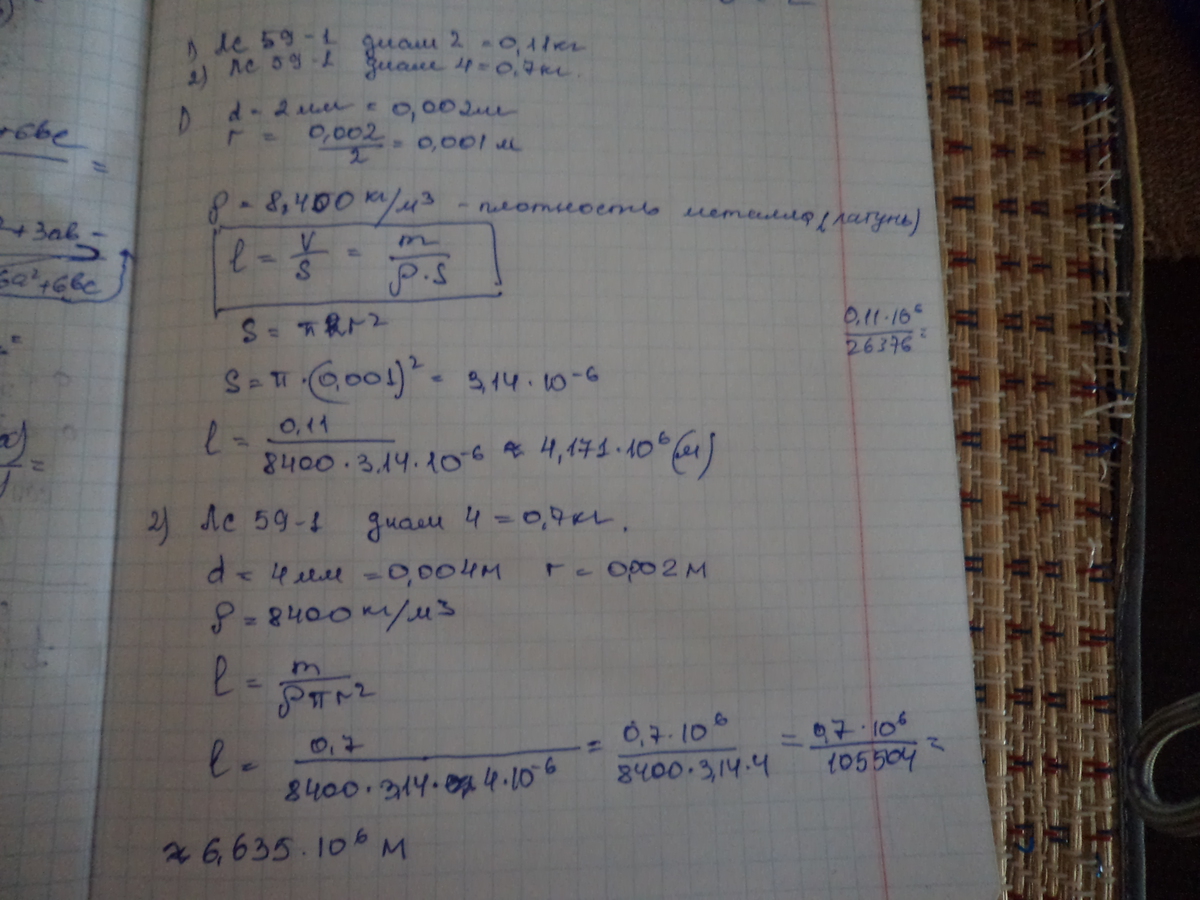 1) Лс 59-1 диам 2 = 0,11кг
2) Лс 59-1 диам 4 = 0,7кг.
1) d = 2мм = 0,002м
r = 0,002/2 = 0,001 м
ρ = 8,400 кг/м³ - плотность металла (латунь)
l = V/S = m/ρ·S
S = πr²
0,11·10⁶/26376 =
S = π·(0,001)² = 3,14·10⁻⁶
l = 0,11/8400·3,14·10⁻⁶ ≈ 4,171·10⁶(м)
2) Лс 59-1 диам 4 = 0,7кг.
d = 4мм = 0,004м r = 0,002м
ρ = 8400 кг/м³
l = m/ρπr²
l = 0,7/8400·3,14·4·10⁻⁶ = 0,7·10⁶/8400·3,14·4 = 0,7·10⁶/105504 =
≈ 6,635·10⁶ м
+6bc
=
²+3ab-
6a²+6bc